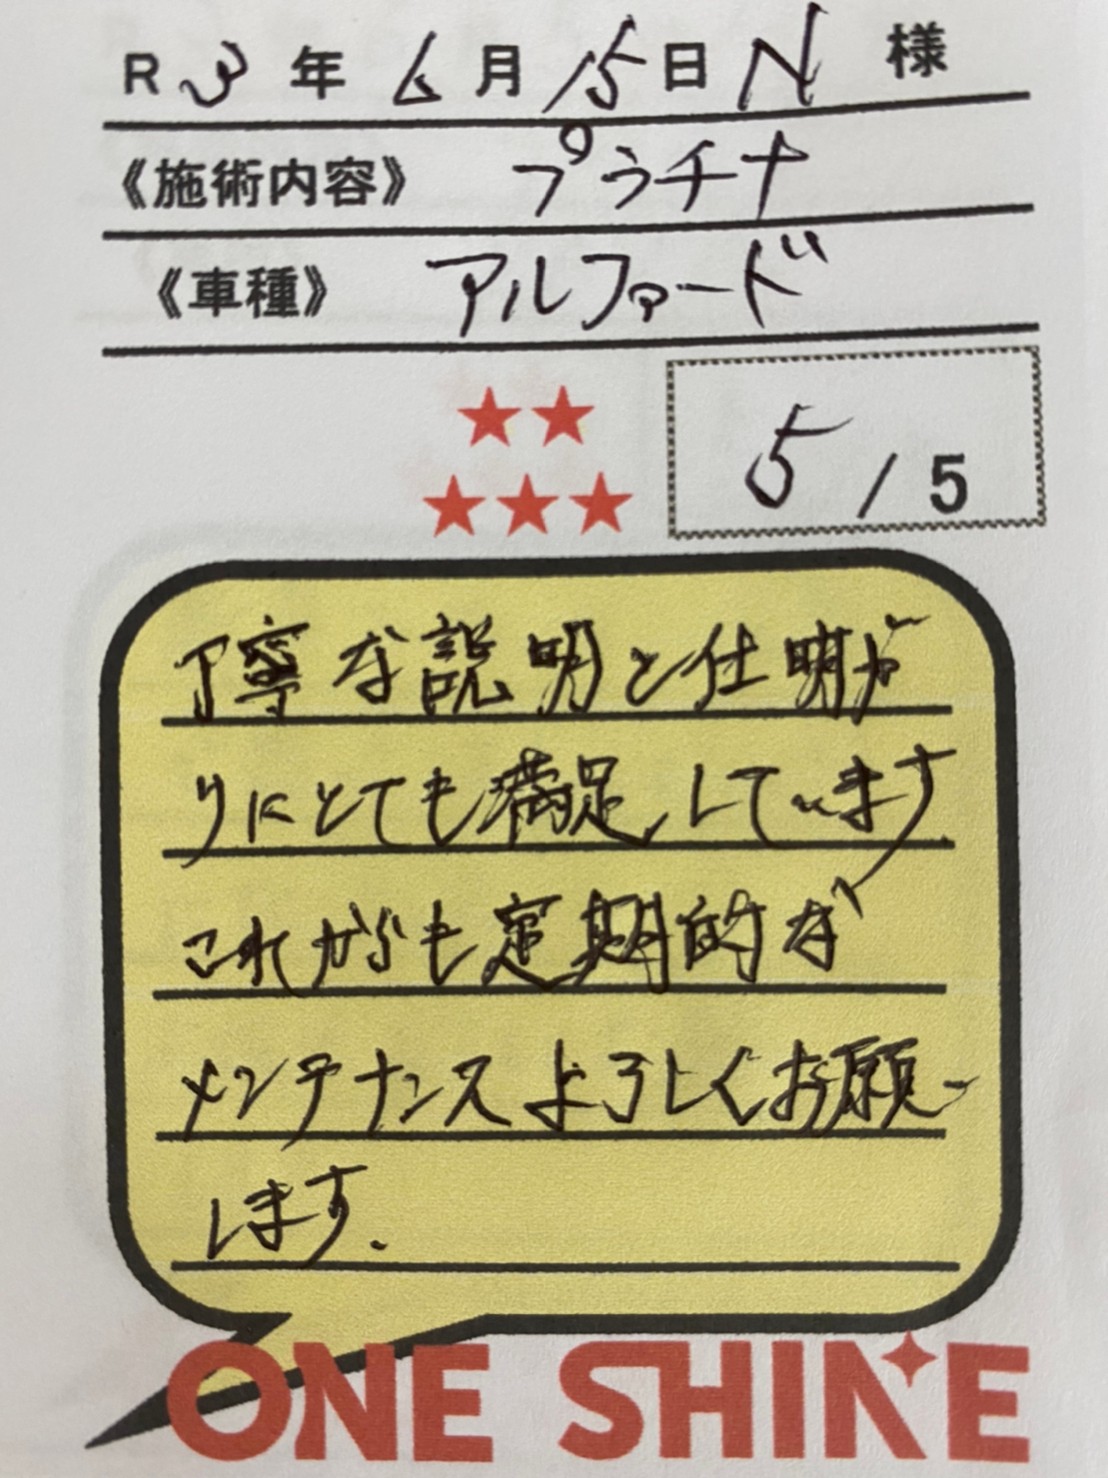 R3年6月15日 N 様
《施術内容》 プラチナ
《車種》 アルファード
5/5
丁寧な説明と仕明が
りにとても満足しています
これからも定期的な
メンテナンスよろしくお願い
します.
ONE SHINE